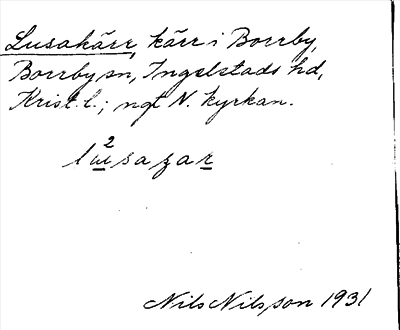 Lusakärr, kärr i Borrby,
Borrby sn, Ingelstads hd,
Krist. l.; ngt N. kyrkan.
Nils Nilsson 1931